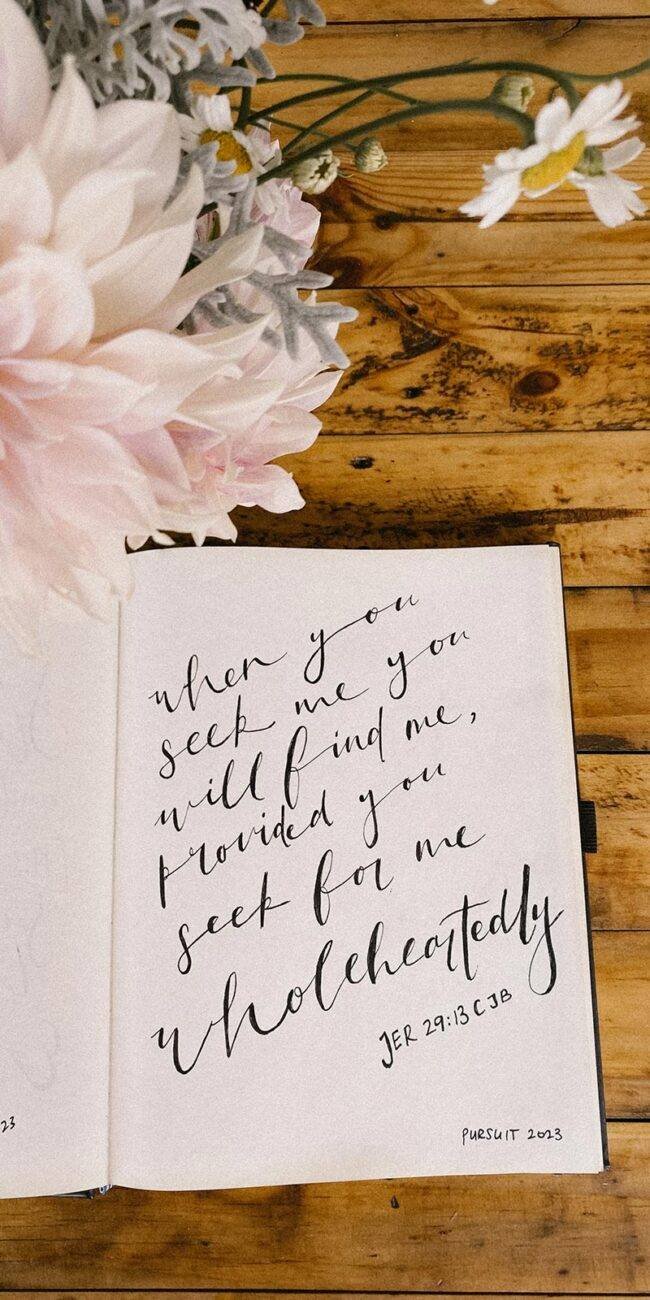 when you
seek me you
will find me,
provided you
seek for me
wholeheartedly
JER 29:13 CJB
23
PURSUIT 2023